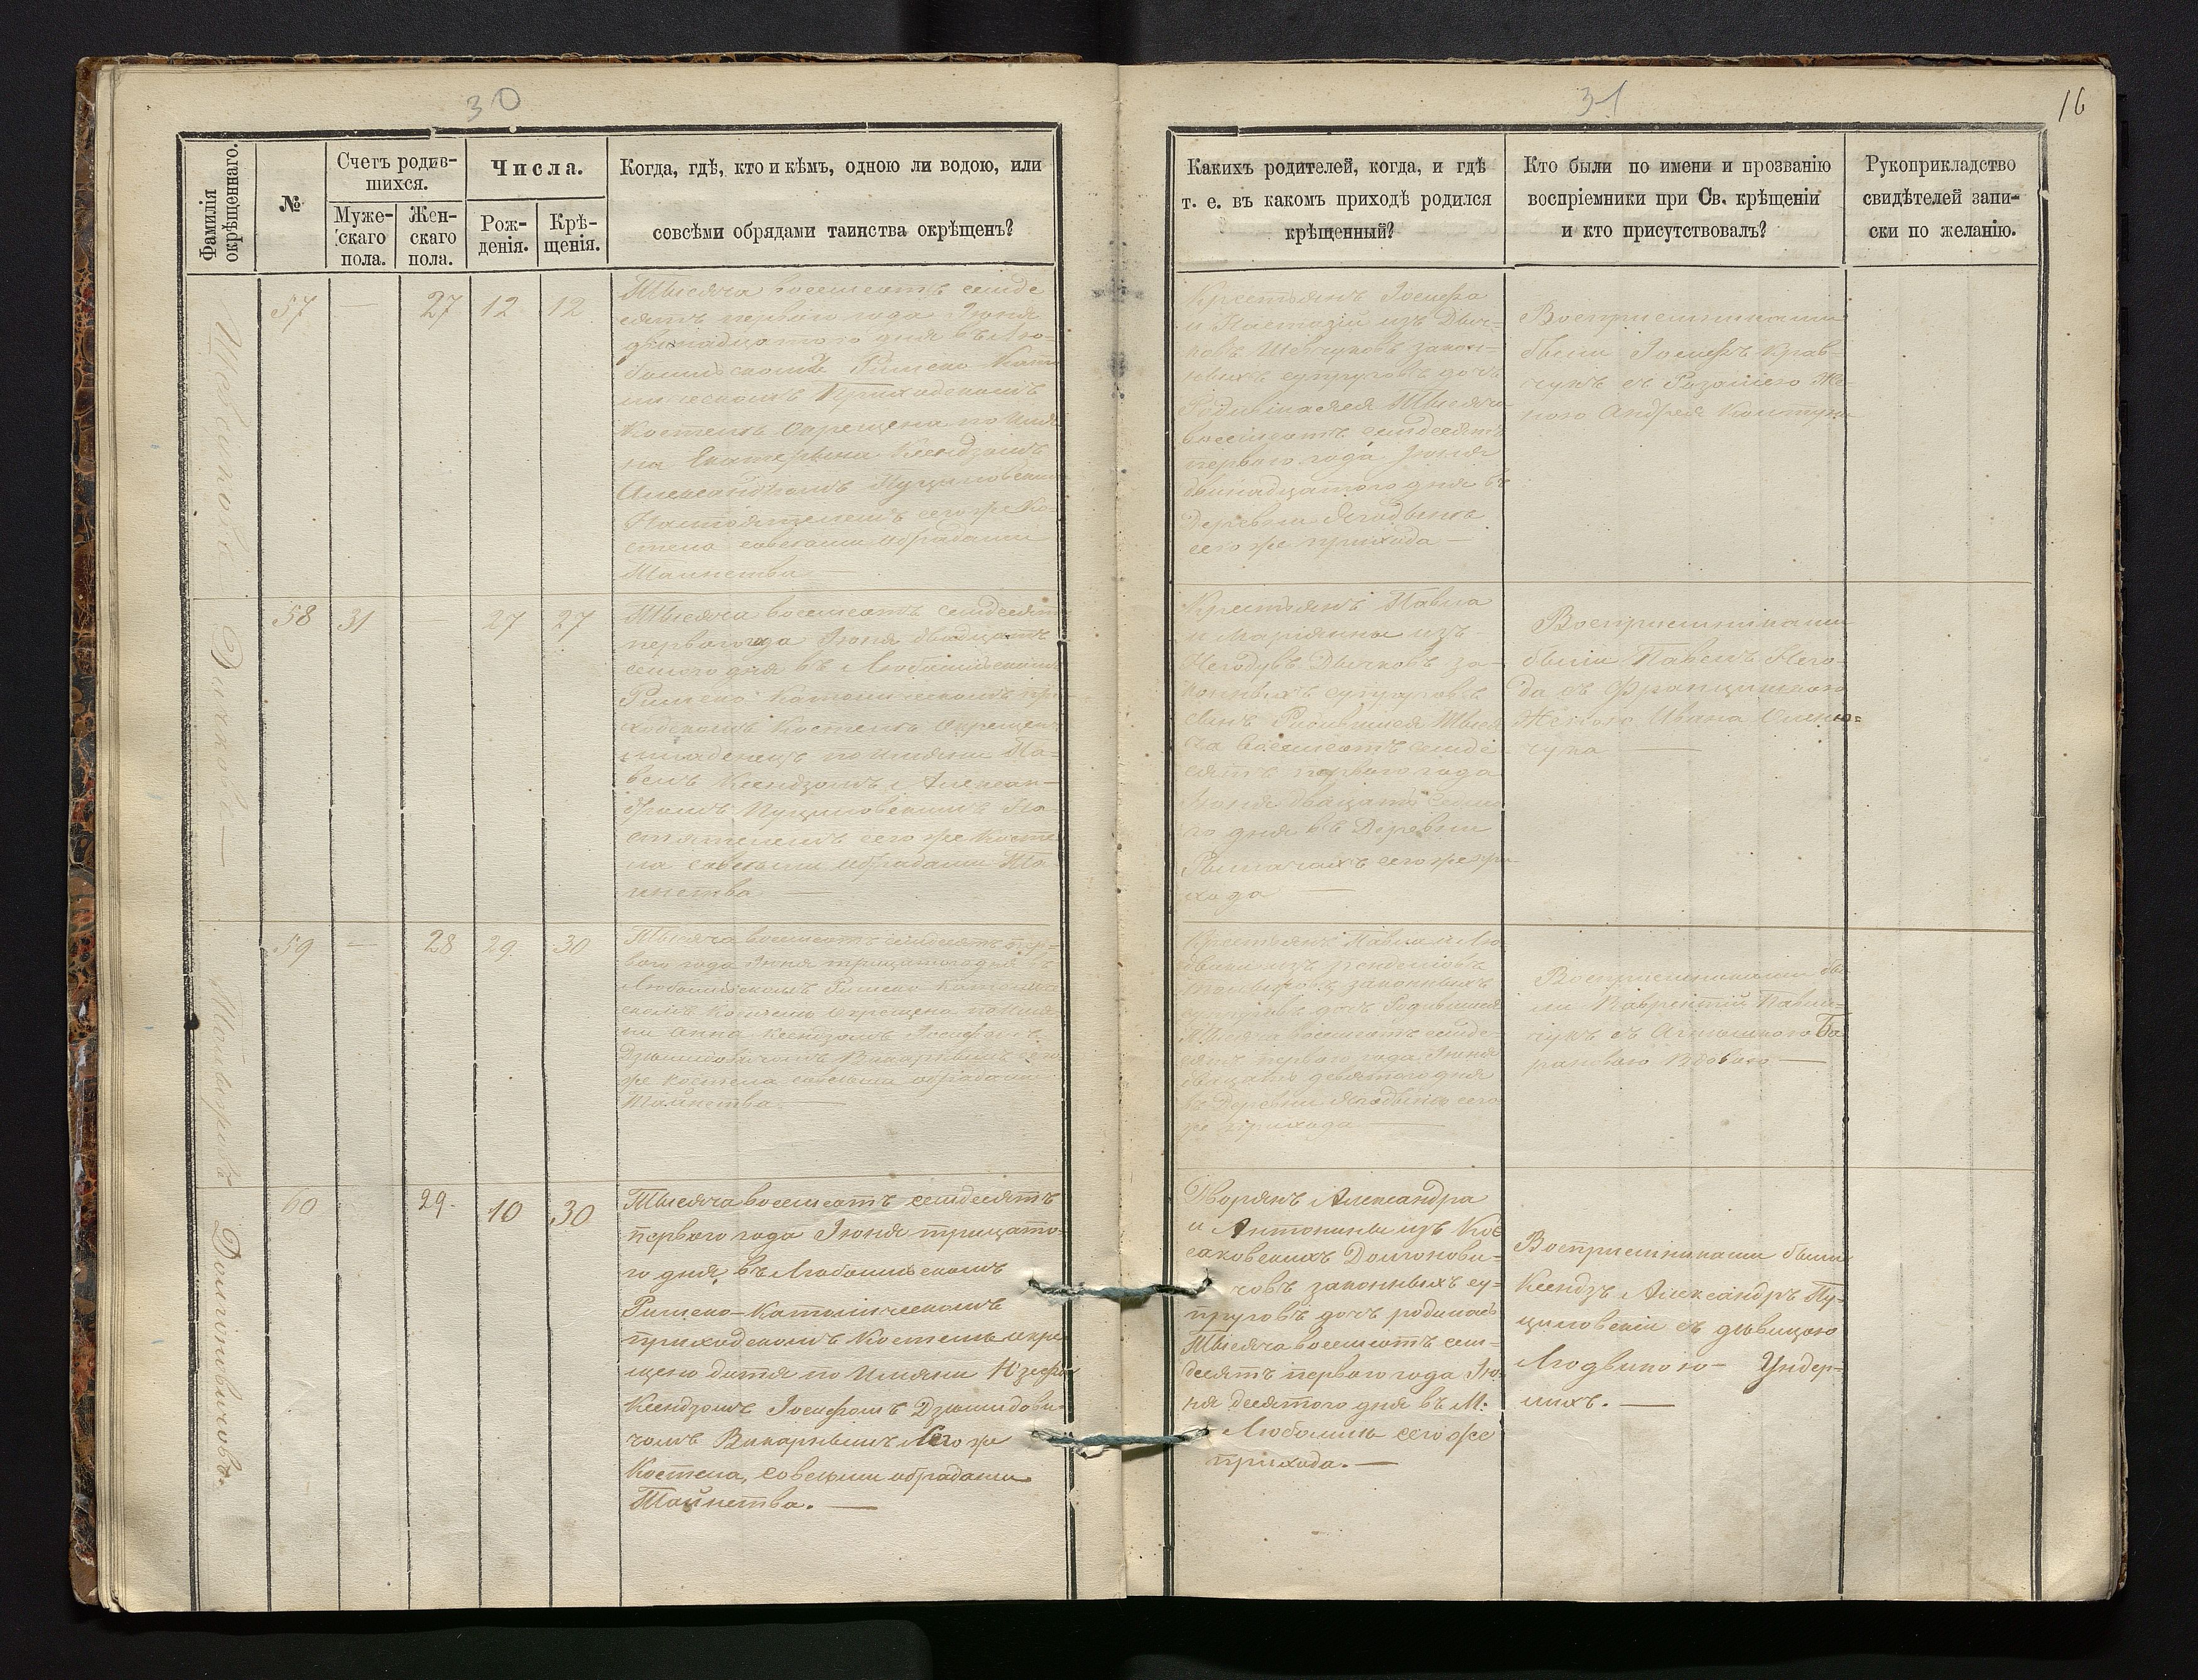 30
Фамилія окрѣщеннаго.
№
Счетъ родив-
шихся.
Муже-
скаго
пола.
Жен-
скаго
пола.
Числа.
Рож-
денія.
Крѣ-
щенія.
Когда, гдѣ, кто и кѣмъ, одною ли водою, или
совсѣми обрядами таинства окрѣщенъ?
57
—
27
12
12
Тысяча восемсотъ семде
сятъ первого года Іюня
двѣнадцатого дня въ Лю-
Римско Като
Приходскомъ
Костелѣ Окрещена по Имя
на Екатерина Ксендзомъ
Александромъ Пуциловскимъ
Настоятелемъ сегоже Ко-
стела совсеми обрядами
Таинства
58
31
—
27
27
Тысяча восемсотъ семдесятъ
первого года Іюня двадцать
семого дня въ Любомльскомъ
Римско Католическомъ при-
ходскомъ Костелѣ Окрещенъ
младенецъ по Имяни Па-
велъ Ксендзомъ Алексан-
дромъ Пуциловскимъ На-
стятелемъ сегоже Косте
ла совсеми обрядами Та
инства —
59
—
28
29
30
Тысяча восемсотъ семдесятъ пер-
вого года Іюня трицатого дня въ
Любомльскомъ Римско Католиче
скомъ Костелѣ Окрещена по Имя
ни Анна Ксендзомъ Іосифомъ
Дзюмидовичомъ Викарнымъ сего
же костела совсеми обрядами
Таинства. —
60
29.
10
30
Тысяча восемсотъ семдесятъ
первого года Іюня трицато-
го дня, въ Любомльскомъ
Римско-Католическомъ
приходскомъ Костелѣ окре
щено дитя по Имяни Юзефа
Ксендзомъ Іосифомъ Дзюмидови-
чомъ Викарнымъ сегоже
Костела, совсеми обрядами
Таинства. —
Дичковъ —
Долгоновичовъ.
31
16
Какихъ родителей, когда, и гдѣ
т. е. въ какомъ приходѣ родился
крѣщенный?
Кто были по имени и прозванію
воспріемники при Св. крѣщеніи
и кто присутствовалъ?
Рукоприкладство
свидѣтелей запи-
ски по желанію.
Крестьянъ Іосифа
и Настазіи изъ Дич-
ковъ Шевчуковъ закон-
ныхъ супруговъ дочь
Родившаяся Тысяча
восемсотъ семдесятъ
первого года Іюня
двѣнадцатого дня въ
Деревни Ягодынѣ
сего же прихода —
Воспріемниками
были Іосифъ Крав-
чукъ съ Розаліею Же-
ною Андрея
Крестьянъ Павла
и Маріянны изъ
Негодувъ Дычковъ за-
конныхъ супруговъ
сынъ Родившися Тыся
ча восемсотъ семде
сятъ первого года
Іюня двацать семо
го дня въ Деревни
Рымачахъ сегоже при
хода —
Воспріемниками
были Павелъ Него-
да съ Францишкою
Женою Ивана
чука —
Крестьянъ Павла и Лю
двики изъ
законныхъ
супруговъ дочь Родившая
Тысяча восемсотъ семде-
сятъ первого года Іюня
двацать девятого дня
въ Деревни Ягодынѣ сего
же прихода —
Воспріемниками бы
ли Лаврентій Павлю-
чукъ съ Агнешкою Ба
рановою Вдовою —
Дворянъ Александра
и Антонины изъ Кос
саковскихъ Долгонови-
човъ законныхъ су-
пруговъ дочь родилась
Тысяча восемсотъ сем-
десятъ первого года Ію-
ня десятого дня въ М.
Любомлѣ сего же
прихода. —
Воспріемниками были
Ксендзъ Александръ Пу-
циловскій съ дѣвицою
Людвикою — Ундер-
лихъ. —